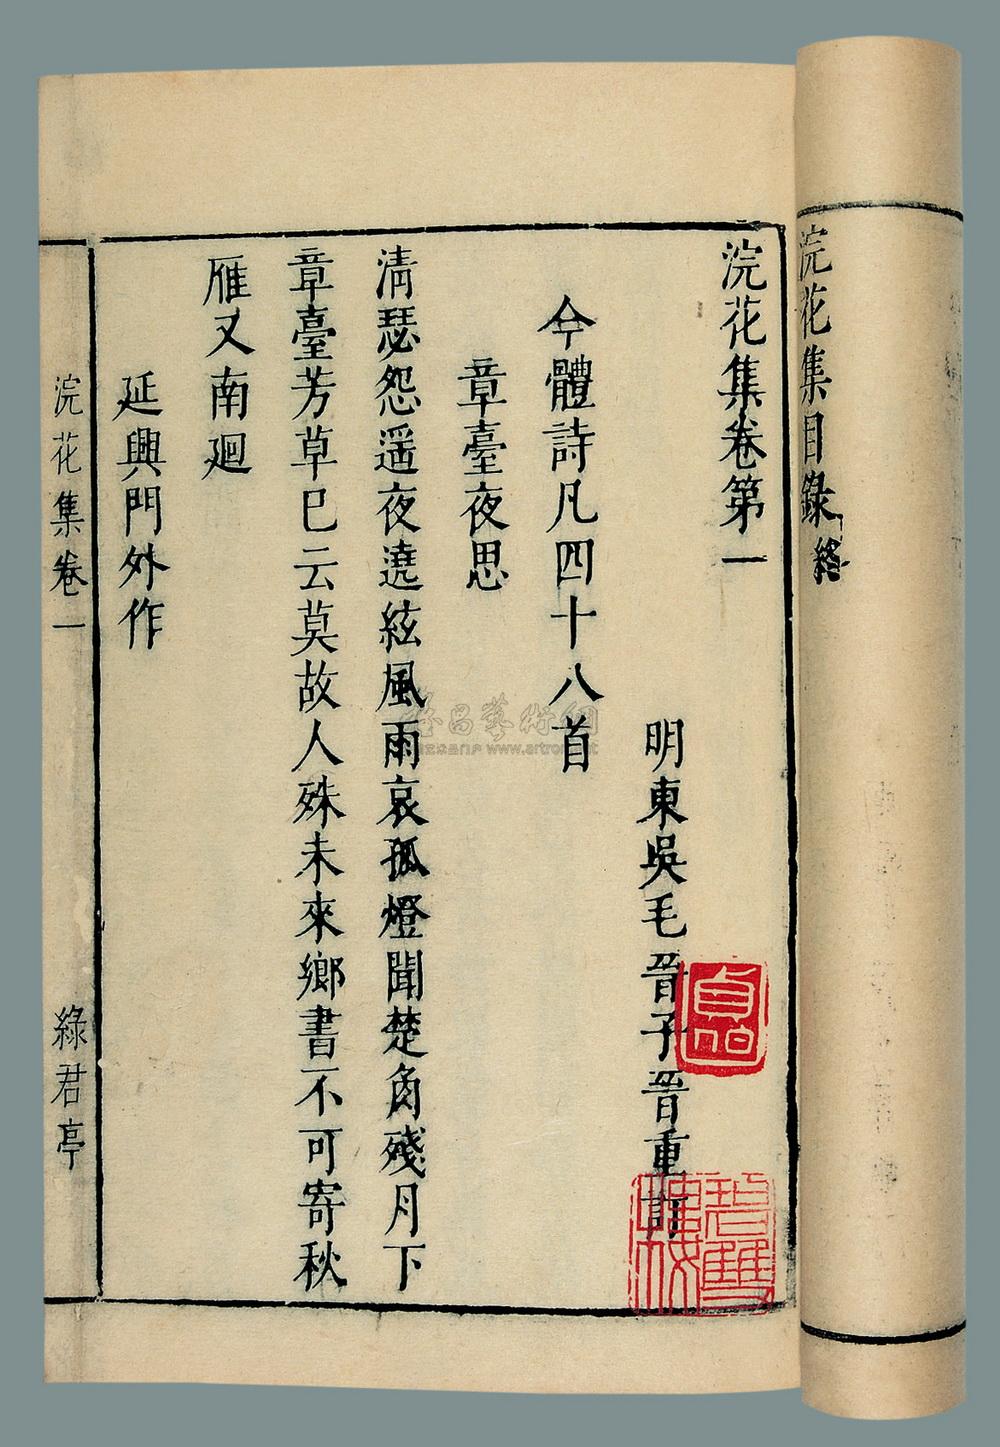 浣花集目錄終
浣花集卷第一
明東吳毛晉子晉重訂
今體詩凡四十八首
章臺夜思
清瑟怨遥夜遶絃風雨哀孤燈聞楚角殘月下
章臺芳草巳云莫故人殊未來鄉書不可寄秋
雁又南廻
延興門外作
浣花集卷一
綠君亭
雅昌藝術網
www.artron.net